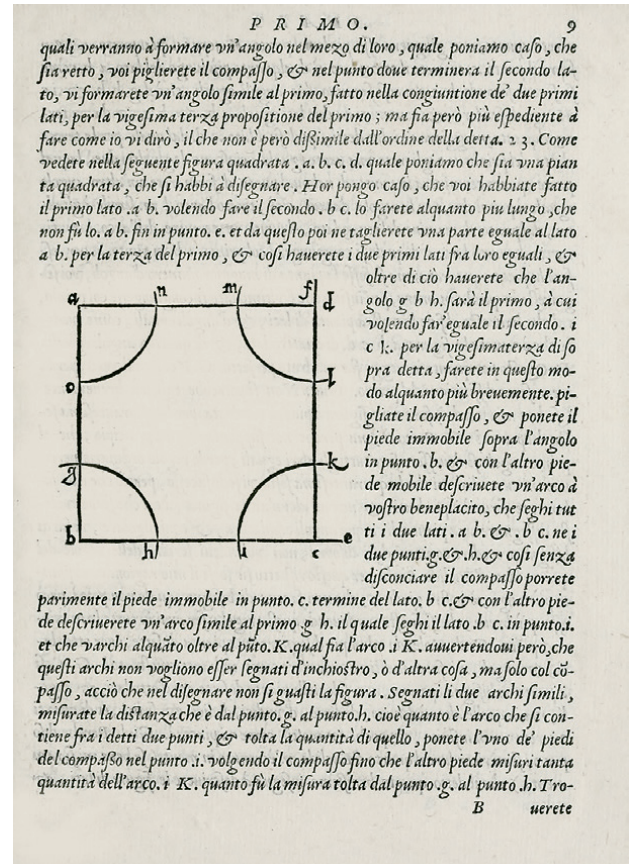 PRIMO. 9
quali verranno à formare vn'angolo nel mezo di loro, quale poniamo caſo, che
ſia retto, voi piglierete il compaſſo, & nel punto doue terminera il ſecondo la-
to, vi formarete vn'angolo ſimile al primo, fatto nella congiuntione de' due primi
lati, per la vigeſima terza propoſitione del primo; ma fia però più eſpediente à
fare come io vi dirò, il che non è però diſſimile dall'ordine della detta. 23. Come
vedete nella ſeguente figura quadrata. a. b. c. d. quale poniamo che ſia vna pian
ta quadrata, che ſi habbi à diſegnare. Hor pongo caſo, che voi habbiate fatto
il primo lato. a b. volendo fare il ſecondo. b c. lo farete alquanto piu lungo, che
non fù lo. a b. fin in punto. e. et da queſto poi ne taglierete vna parte eguale al lato
a b. per la terza del primo, & coſi hauerete i due primi lati fra loro eguali, &
oltre di ciò hauerete che l'an-
golo g b h. ſarà il primo, à cui
volendo far'eguale il ſecondo. i
c k. per la vigeſimaterza di ſo
pra detta, farete in queſto mo-
do alquanto più breuemente. pi-
gliate il compaſſo, & ponete il
piede immobile ſopra l'angolo
in punto. b. & con l'altro pie-
de mobile deſcriuete vn'arco à
voſtro beneplacito, che ſeghi tut
ti i due lati. a b. & . b c. ne i
due punti.g.&.h.& coſi ſenza
diſconciare il compaſſo porrete
a n m f d
o l
g k
b h i c e
parimente il piede immobile in punto. c. termine del lato. b c.& con l'altro pie-
de deſcriuerete vn'arco ſimile al primo .g h. il quale ſeghi il lato .b c. in punto.i.
et che varchi alquāto oltre al pūto. K.qual fia l'arco .i K. auuertendoui però,che
queſti archi non vogliono eſſer ſegnati d'inchioſtro, ò d'altra coſa, ma ſolo col cō-
paſſo, acciò che nel diſegnare non ſi guaſti la figura. Segnati li due archi ſimili,
miſurate la diſtanza che è dal punto.g. al punto.h. cioè quanto è l'arco che ſi con-
tiene fra i detti due punti, & tolta la quantità di quello, ponete l'vno de' piedi
del compaßo nel punto .i. volgendo il compaſſo fino che l'altro piede miſuri tanta
quantità dell'arco. i K. quanto fù la miſura tolta dal punto .g. al punto .h. Tro-
B uerete